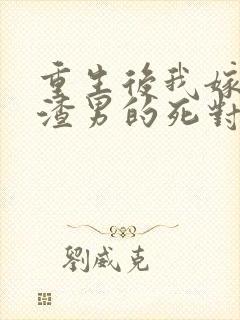 重生後我嫁
渣男的死對
劉威克